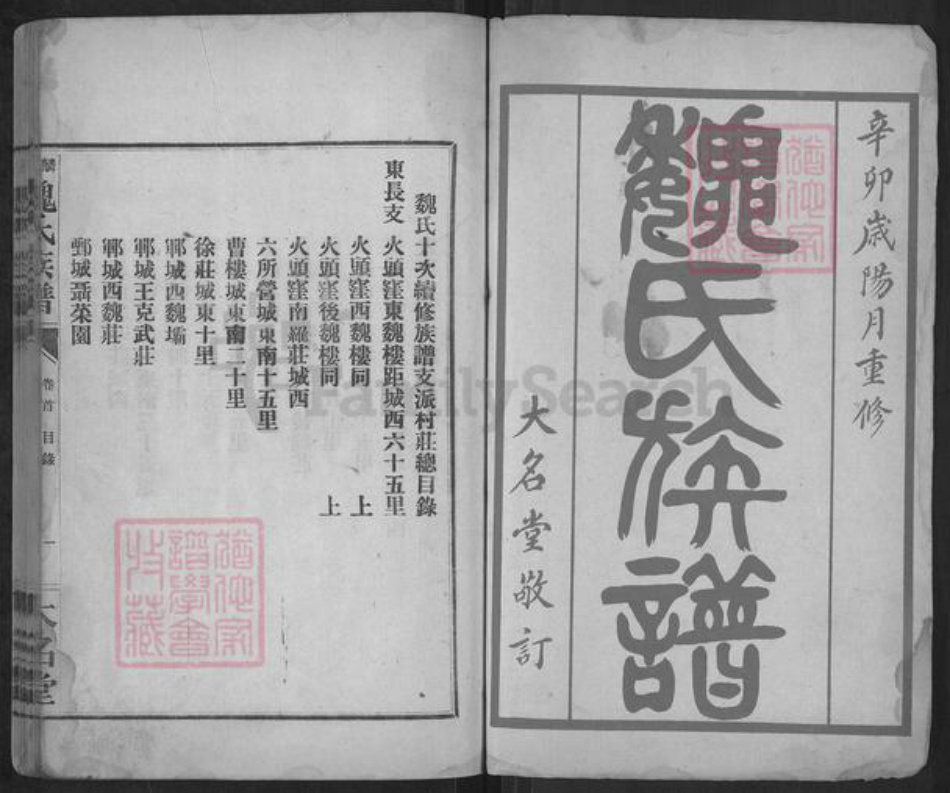 辛卯歲陽月重修
魏氏族譜
大名堂敬訂
魏氏十次續修族譜支派村莊總目錄
東長支 火頭窪東魏樓距城西六十五里
火頭窪西魏樓同 上
火頭窪後魏樓同 上
火頭窪南羅莊城西
六所營城東南十五里
曹樓城東南二十里
徐莊城東十里
鄆城西魏壩
鄆城王克武莊
鄆城西魏莊
鄄城聶菜園
魏氏族譜
卷首 目錄
一
大名堂
猶他家譜學會收藏
FamilySearch